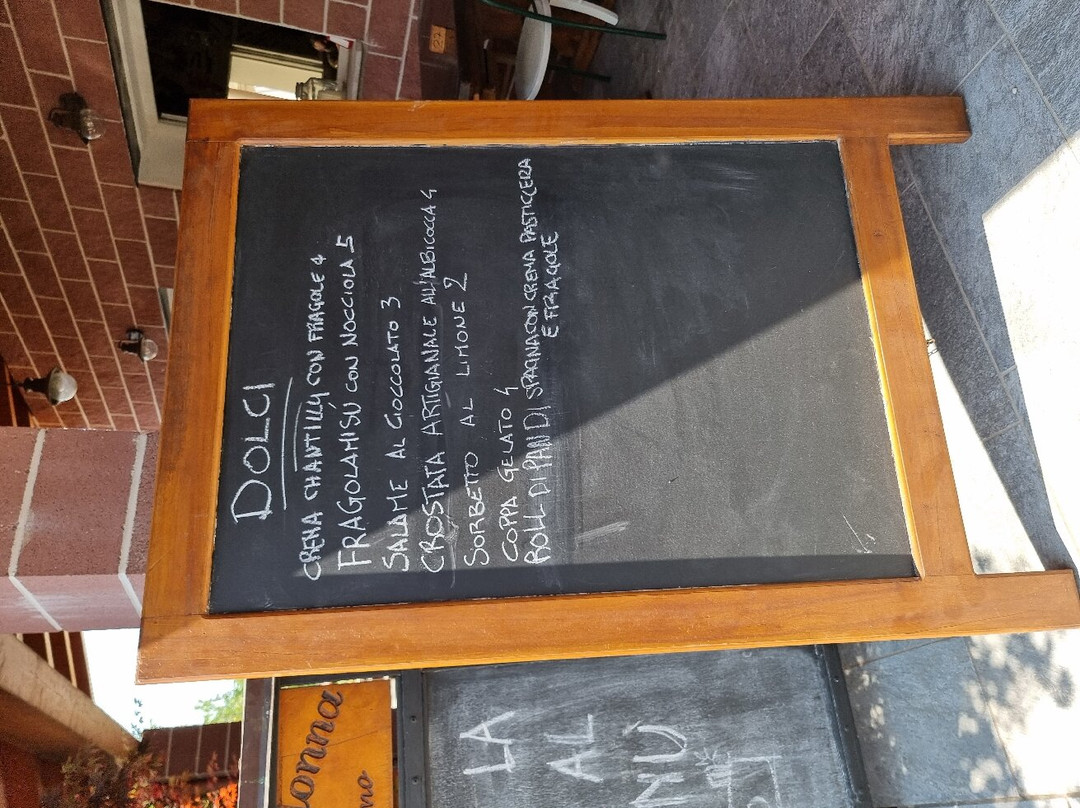 DOLCI
CREMA CHANTILLY CON FRAGOLE 4
FRAGOLAMISÚ CON NOCCIOLA 5
SALAME AL CIOCCOLATO 3
CROSTATA ARTIGIANALE ALL'ALBICOCCA 4
SORBETTO AL LIMONE 2
COPPA GELATO 4
ROLL DI PAN DI SPAGNA CON CREMA PASTICCERA
E FRAGOLE
onna
no
LA
AL
NU
27